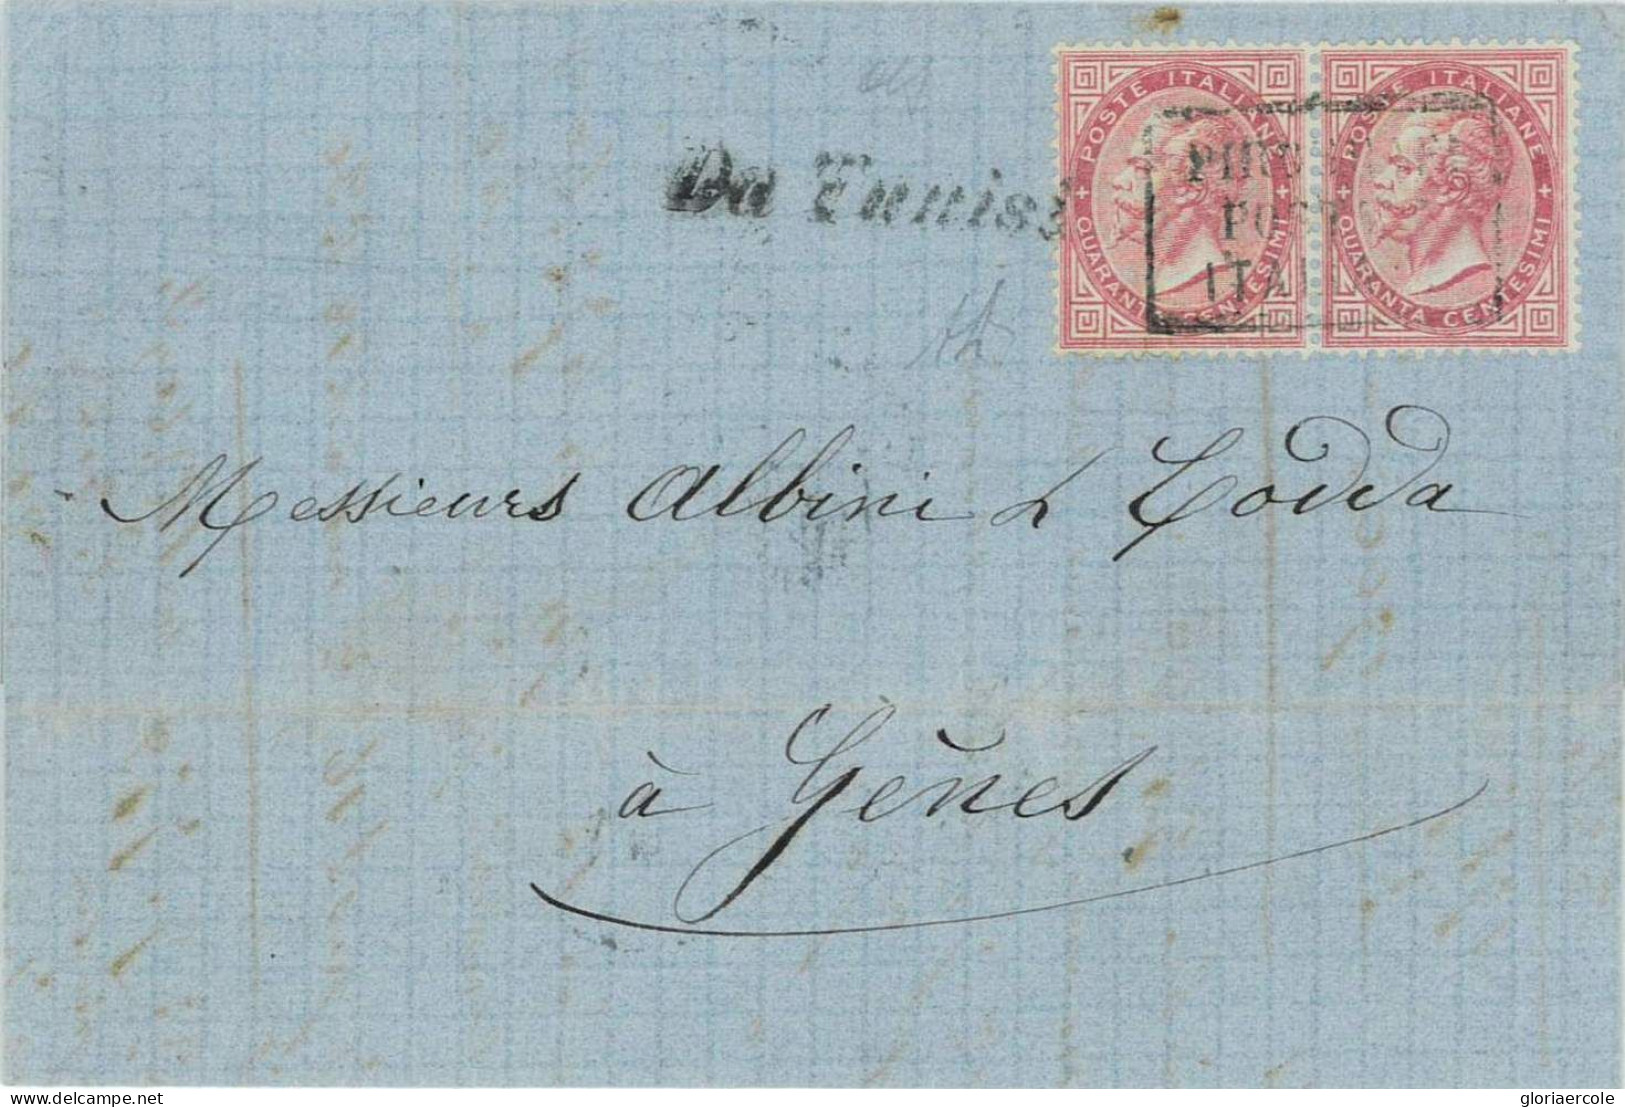 POSTE ITALIANE
QUARANTA CENTESIMI
POSTE ITALIANE
QUARANTA CENTESIMI
Da Tunisi
Messieurs Albini & Todda
à Gênes
delcampe.net
gloriaercole